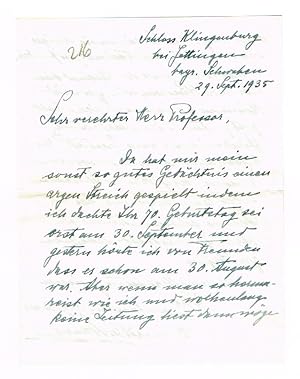 216
Schloss Klingenburg
bei Jettingen
bayr. Schwaben
29. Sept. 1935
Sehr verehrter Herr Professor,
Da hat mir mein
sonst so gutes Gedächtnis einen
argen Streich gespielt indem
ich dachte Ihr 70. Geburtstag sei
erst am 30. September und
gestern hörte ich von Freunden
dass es schon am 30. August
war. Aber wenn man so herum
reist wie ich und wochenlang
keine Zeitung liest dann möge